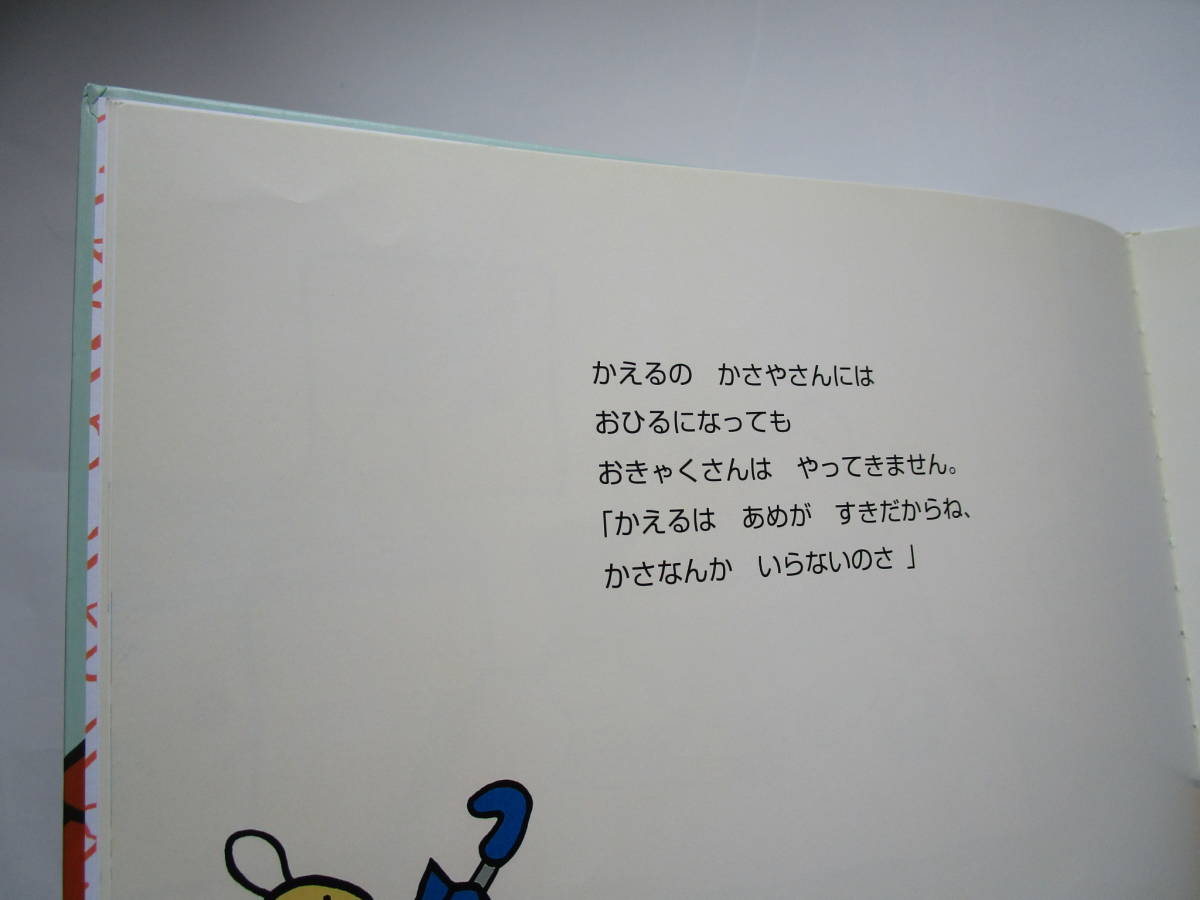 かえるの　かさやさんには
おひるになっても
おきゃくさんは　やってきません。
「かえるは　あめが　すきだからね、
かさなんか　いらないのさ」